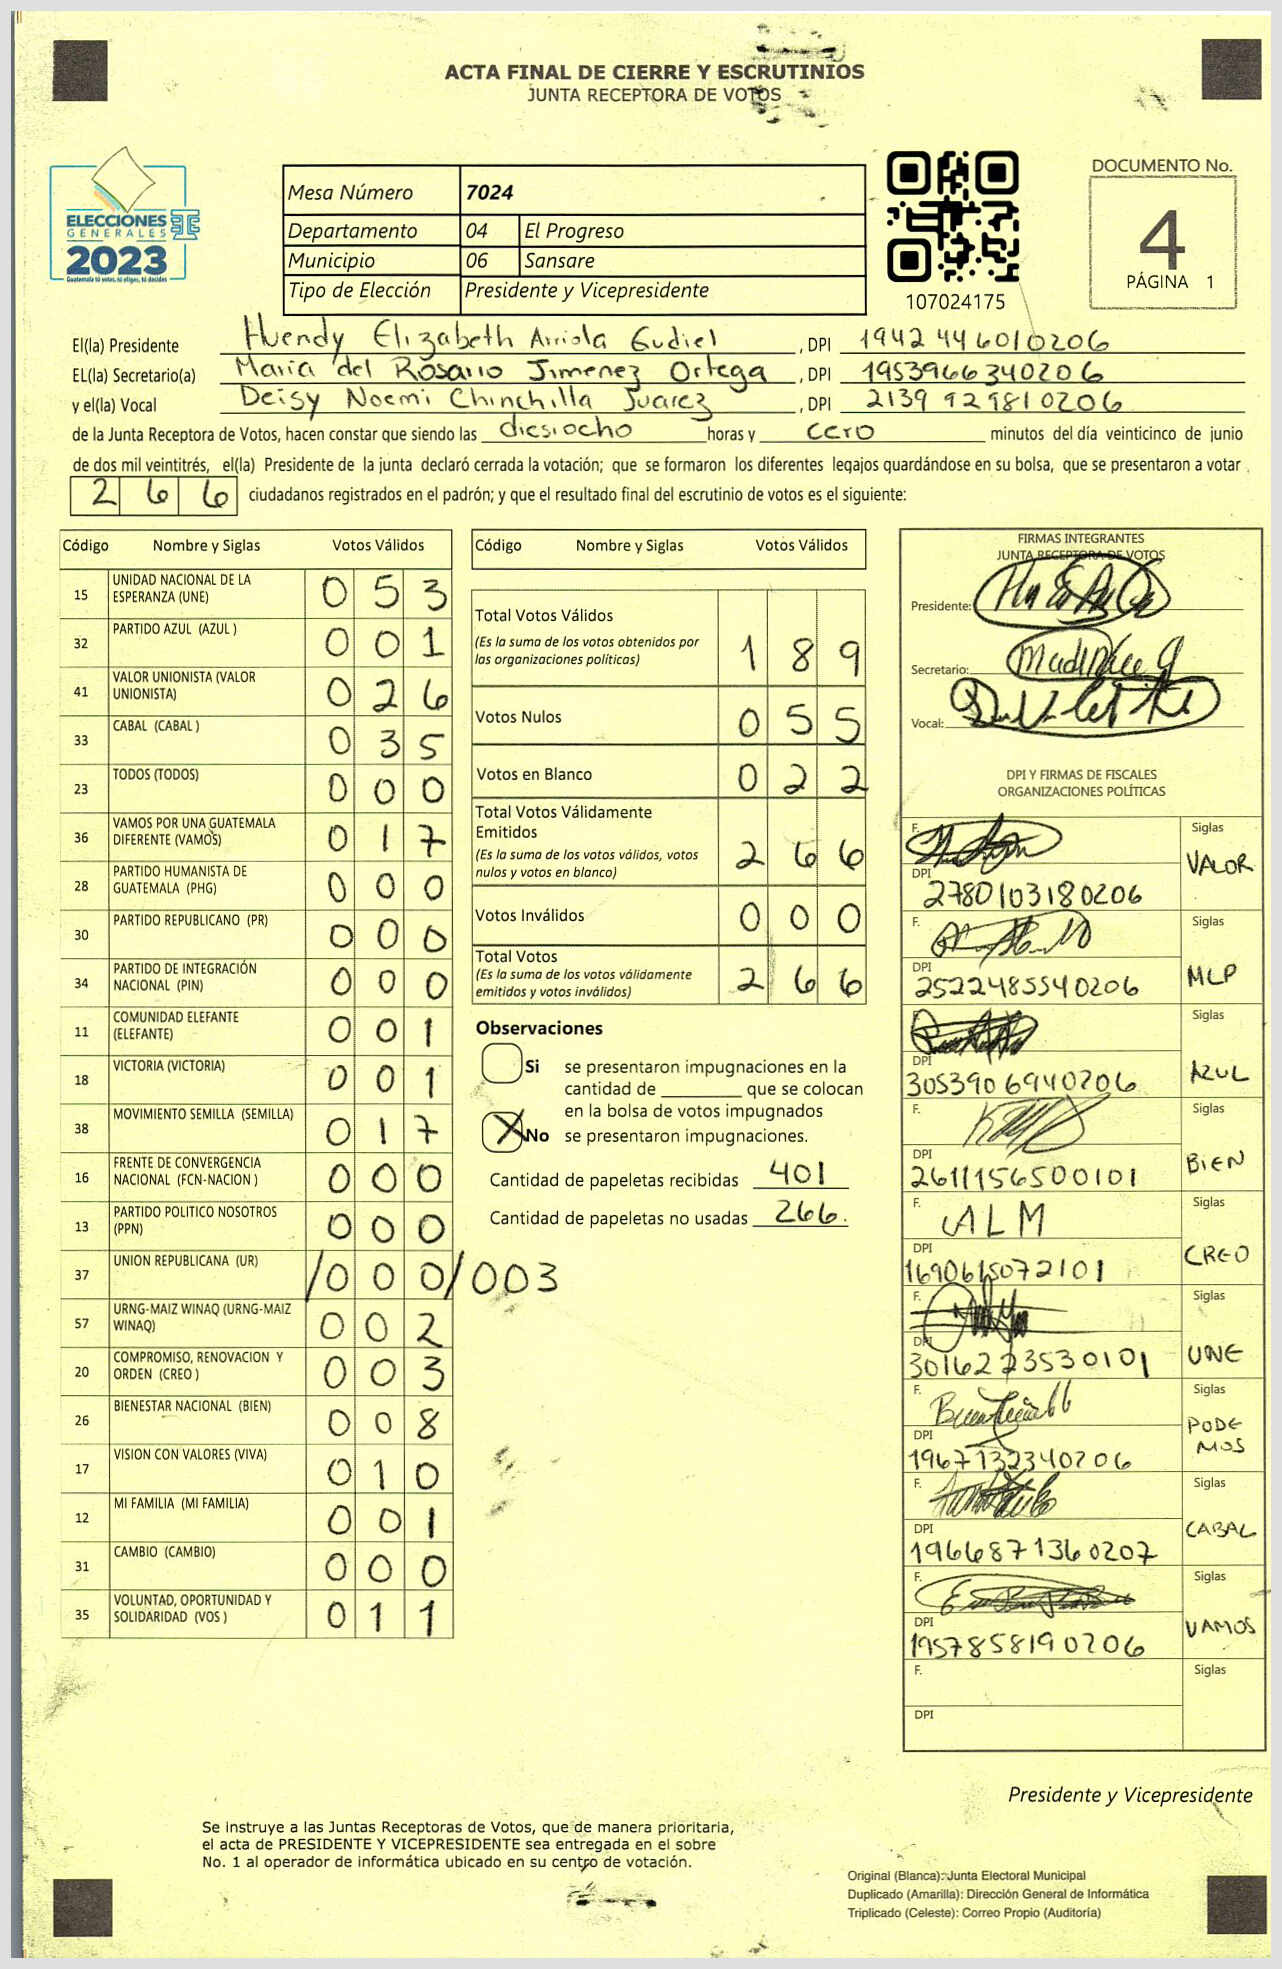 ACTA FINAL DE CIERRE Y ESCRUTINIOS
JUNTA RECEPTORA DE VOTOS
ELECCIONES
GENERALES
2023
Guatemala tú votas, tú eliges, tú decides
Mesa Número 7024
Departamento 04 El Progreso
Municipio 06 Sansare
Tipo de Elección Presidente y Vicepresidente
107024175
DOCUMENTO No.
4
PÁGINA 1
El(la) Presidente Huendy Elizabeth Arriola Gudiel , DPI 1942 446010206
EL(la) Secretario(a) Maria del Rosario Jimenez Ortega , DPI 1953966340206
y el(la) Vocal Deisy Noemi Chinchilla Juarez , DPI 2139 929810206
de la Junta Receptora de Votos, hacen constar que siendo las diesiocho horas y cero minutos del día veinticinco de junio
de dos mil veintitrés, el(la) Presidente de la junta declaró cerrada la votación; que se formaron los diferentes legajos guardándose en su bolsa, que se presentaron a votar
266 ciudadanos registrados en el padrón; y que el resultado final del escrutinio de votos es el siguiente:
Código Nombre y Siglas Votos Válidos
15 UNIDAD NACIONAL DE LA ESPERANZA (UNE) 053
32 PARTIDO AZUL (AZUL ) 001
41 VALOR UNIONISTA (VALOR UNIONISTA) 026
33 CABAL (CABAL ) 035
23 TODOS (TODOS) 000
36 VAMOS POR UNA GUATEMALA DIFERENTE (VAMOS) 017
28 PARTIDO HUMANISTA DE GUATEMALA (PHG) 000
30 PARTIDO REPUBLICANO (PR) 000
34 PARTIDO DE INTEGRACIÓN NACIONAL (PIN) 000
11 COMUNIDAD ELEFANTE (ELEFANTE) 001
18 VICTORIA (VICTORIA) 001
38 MOVIMIENTO SEMILLA (SEMILLA) 017
16 FRENTE DE CONVERGENCIA NACIONAL (FCN-NACION ) 000
13 PARTIDO POLITICO NOSOTROS (PPN) 000
37 UNION REPUBLICANA (UR) /000/003
57 URNG-MAIZ WINAQ (URNG-MAIZ WINAQ) 002
20 COMPROMISO, RENOVACION Y ORDEN (CREO ) 003
26 BIENESTAR NACIONAL (BIEN) 008
17 VISION CON VALORES (VIVA) 010
12 MI FAMILIA (MI FAMILIA) 001
31 CAMBIO (CAMBIO) 000
35 VOLUNTAD, OPORTUNIDAD Y SOLIDARIDAD (VOS ) 011
Código Nombre y Siglas Votos Válidos
Total Votos Válidos
(Es la suma de los votos obtenidos por
las organizaciones políticas) 189
Votos Nulos 055
Votos en Blanco 022
Total Votos Válidamente
Emitidos
(Es la suma de los votos válidos, votos
nulos y votos en blanco) 266
Votos Inválidos 000
Total Votos
(Es la suma de los votos válidamente
emitidos y votos inválidos) 266
Observaciones
Si se presentaron impugnaciones en la
cantidad de ________ que se colocan
en la bolsa de votos impugnados
X No se presentaron impugnaciones.
Cantidad de papeletas recibidas 401
Cantidad de papeletas no usadas 266.
FIRMAS INTEGRANTES
JUNTA RECEPTORA DE VOTOS
Presidente:
Secretario:
Vocal:
DPI Y FIRMAS DE FISCALES
ORGANIZACIONES POLÍTICAS
F. Siglas
DPI 2780103180206 VALOR
F. Siglas
DPI 2522485540206 MLP
F. Siglas
DPI 3053906940206 AZUL
F. Siglas
DPI 2611156500101 BIEN
F. ALM Siglas
DPI 1690615072101 CREO
F. Siglas
DPI 3016223530101 UNE
F. Siglas
DPI 1967132340206 PODEMOS
F. Siglas
DPI 1966871360207 CABAL
F. Siglas
DPI 1957858190206 VAMOS
F. Siglas
DPI
Presidente y Vicepresidente
Se instruye a las Juntas Receptoras de Votos, que de manera prioritaria,
el acta de PRESIDENTE Y VICEPRESIDENTE sea entregada en el sobre
No. 1 al operador de informática ubicado en su centro de votación.
Original (Blanca): Junta Electoral Municipal
Duplicado (Amarilla): Dirección General de Informática
Triplicado (Celeste): Correo Propio (Auditoría)